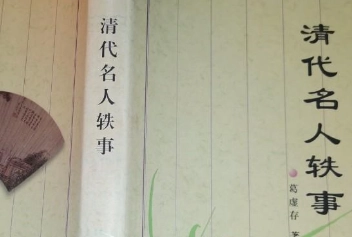 清代名人轶事
清代名人轶事
葛虚存 著